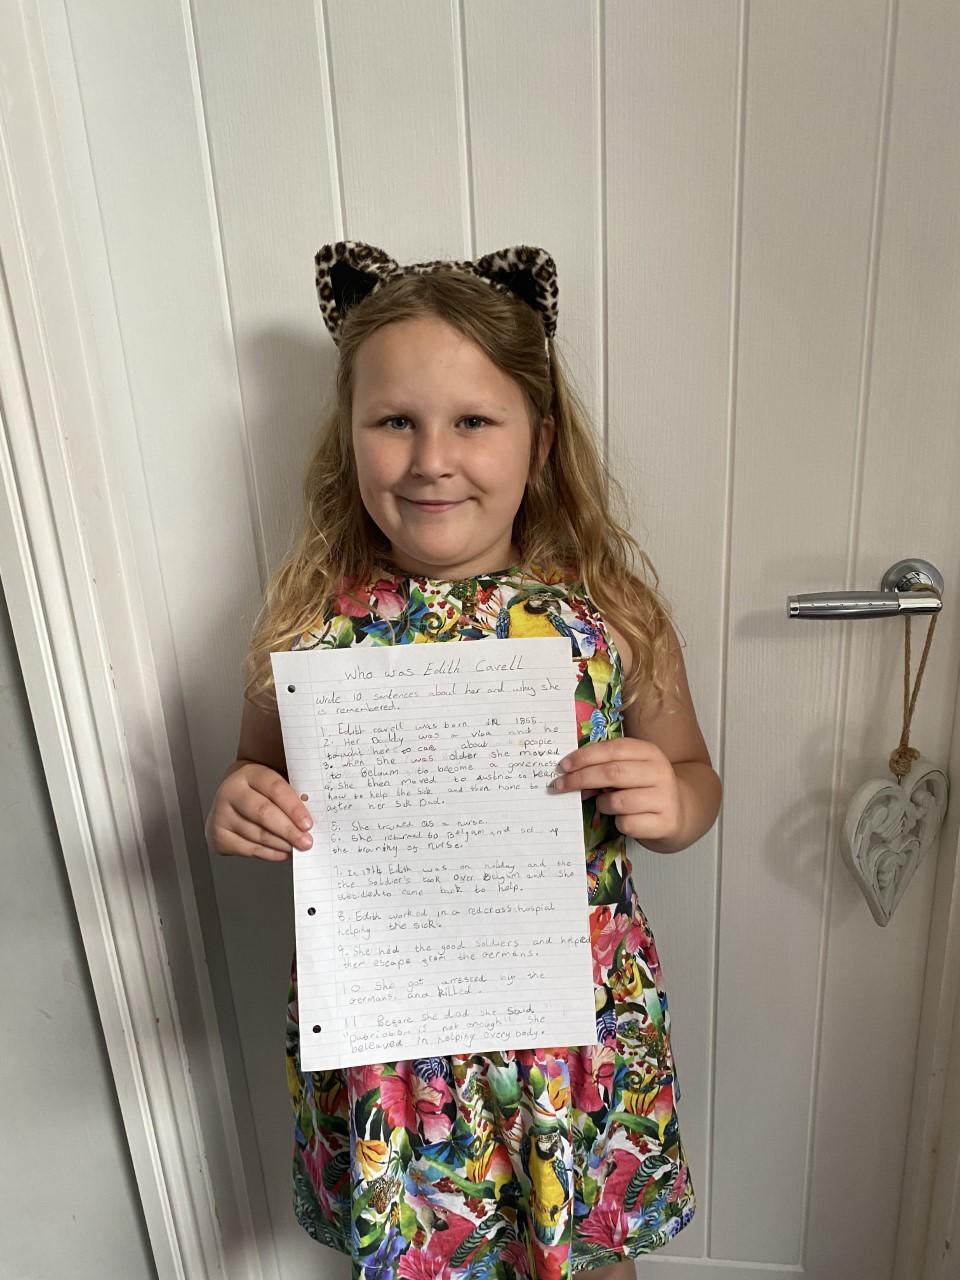 Who was Edith Cavell
Write 10 sentences about her and why she
is remembered.
1. Edith cavell was born in 1865
2. Her Daddy was a vica and he
taught her to care about people.
3. when she was older she moved
to Belgum to become a governess
4. She then moved to Austria to learn
how to help the sick and then home to
after her sick Dad.
5. She trained as a nurse.
6. She returned to Belgum and set up
the training of nurse.
7. In 1914 Edith was on holiday and the
the Soldier's took over Belgum and she
decided to came back to help.
8. Edith worked in a redcross hospial
helping the sick.
9. She hid the good soldiers and helped
them escape from the Germans.
10 She got arrested by the
germans, and killed.
11 Before she died she said
"patriotism is not enough" she
beleaved in helping every body.